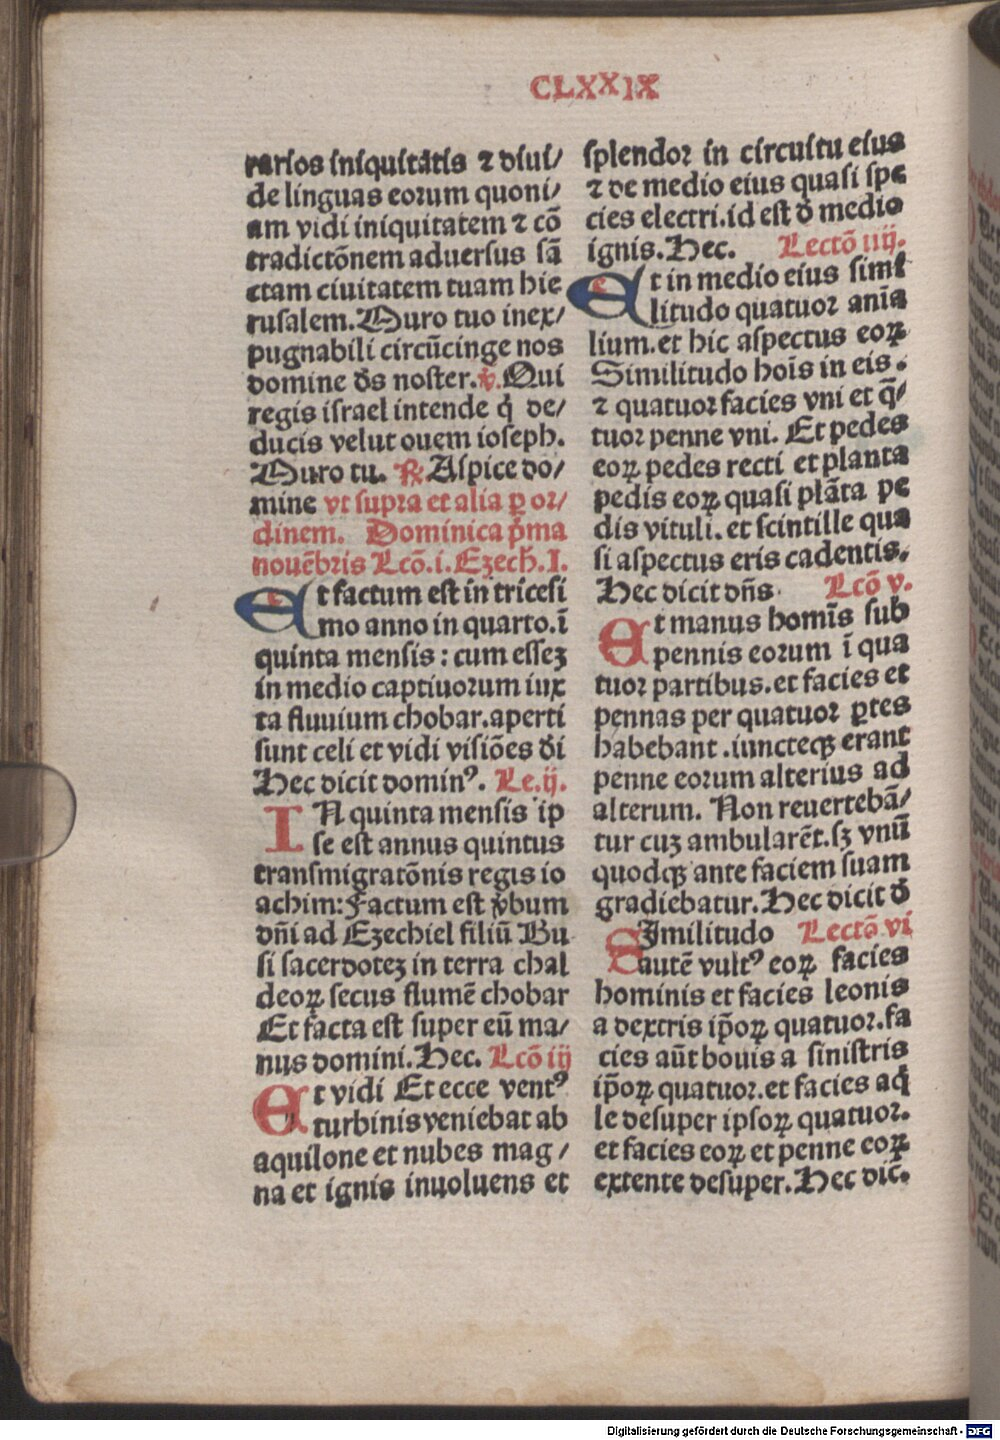 CLXXIX
rarios iniquitātis ⁊ diui/
de linguas eorum quoni/
am vidi iniquitatem ⁊ cō
tradictōnem aduersus sā
ctam ciuitatem tuam hie
rusalem. Muro tuo inex/
pugnabili circūcinge nos
domine d̄s noster. ℣. Qui
regis israel intende q̄ de/
ducis velut ouem ioseph.
Muro tu. ℟ Aspice do/
mine vt supra et alia ꝑ or/
dinem. Dominica p̄ma
nouēbris Lcō. i. Ezech̄. I.
Et factum est in tricesi
mo anno in quarto. ī
quinta mensis : cum esseꝫ
in medio captiuorum iux
ta fluuium chobar. aperti
sunt celi et vidi visiōes d̄i
Hec dicit dominꝰ. Le. ij.
IN quinta mensis ip
se est annus quintus
transmigratōnis regis io
achim: Factum est v̄bum
dn̄i ad Ezechiel filiū Bu
si sacerdoteꝫ in terra chal
deoꝝ secus flumē chobar
Et facta est super eū ma/
nus domini. Hec. Lcō iij
Et vidi Et ecce ventꝰ
turbinis veniebat ab
aquilone et nubes mag/
na et ignis inuoluens et
splendor in circuitu eius
⁊ de medio eius quasi spe
cies electri. id est d̄ medio
ignis. Hec. Lectō iiij.
Et in medio eius simi
litudo quatuor aniā
lium. et hic aspectus eoꝝ
Similitudo hoīs in eis.
⁊ quatuor facies vni et q̄/
tuor penne vni. Et pedes
eoꝝ pedes recti et planta
pedis eoꝝ quasi plāta pe
dis vituli. et scintille qua
si aspectus eris cadentis.
Hec dicit dn̄s. Lcō v.
Et manus homīs sub
pennis eorum ī qua
tuor partibus. et facies et
pennas per quatuor ꝑtes
habebant. iuncteqꝫ erant
penne eorum alterius ad
alterum. Non reuertebā/
tur cuꝫ ambularēt. sꝫ vnū
quodqꝫ ante faciem suam
gradiebatur. Hec dicit d̄
SImilitudo Lectō vi
autē vultꝰ eoꝝ facies
hominis et facies leonis
a dextris ip̄oꝝ quatuor. fa
cies aūt bouis a sinistris
ip̄oꝝ quatuor. et facies aq̄
le desuper ipsoꝝ quatuor.
et facies eoꝝ et penne eoꝝ
extente desuper. Hec dic̄.
Digitalisierung gefördert durch die Deutsche Forschungsgemeinschaft - DFG